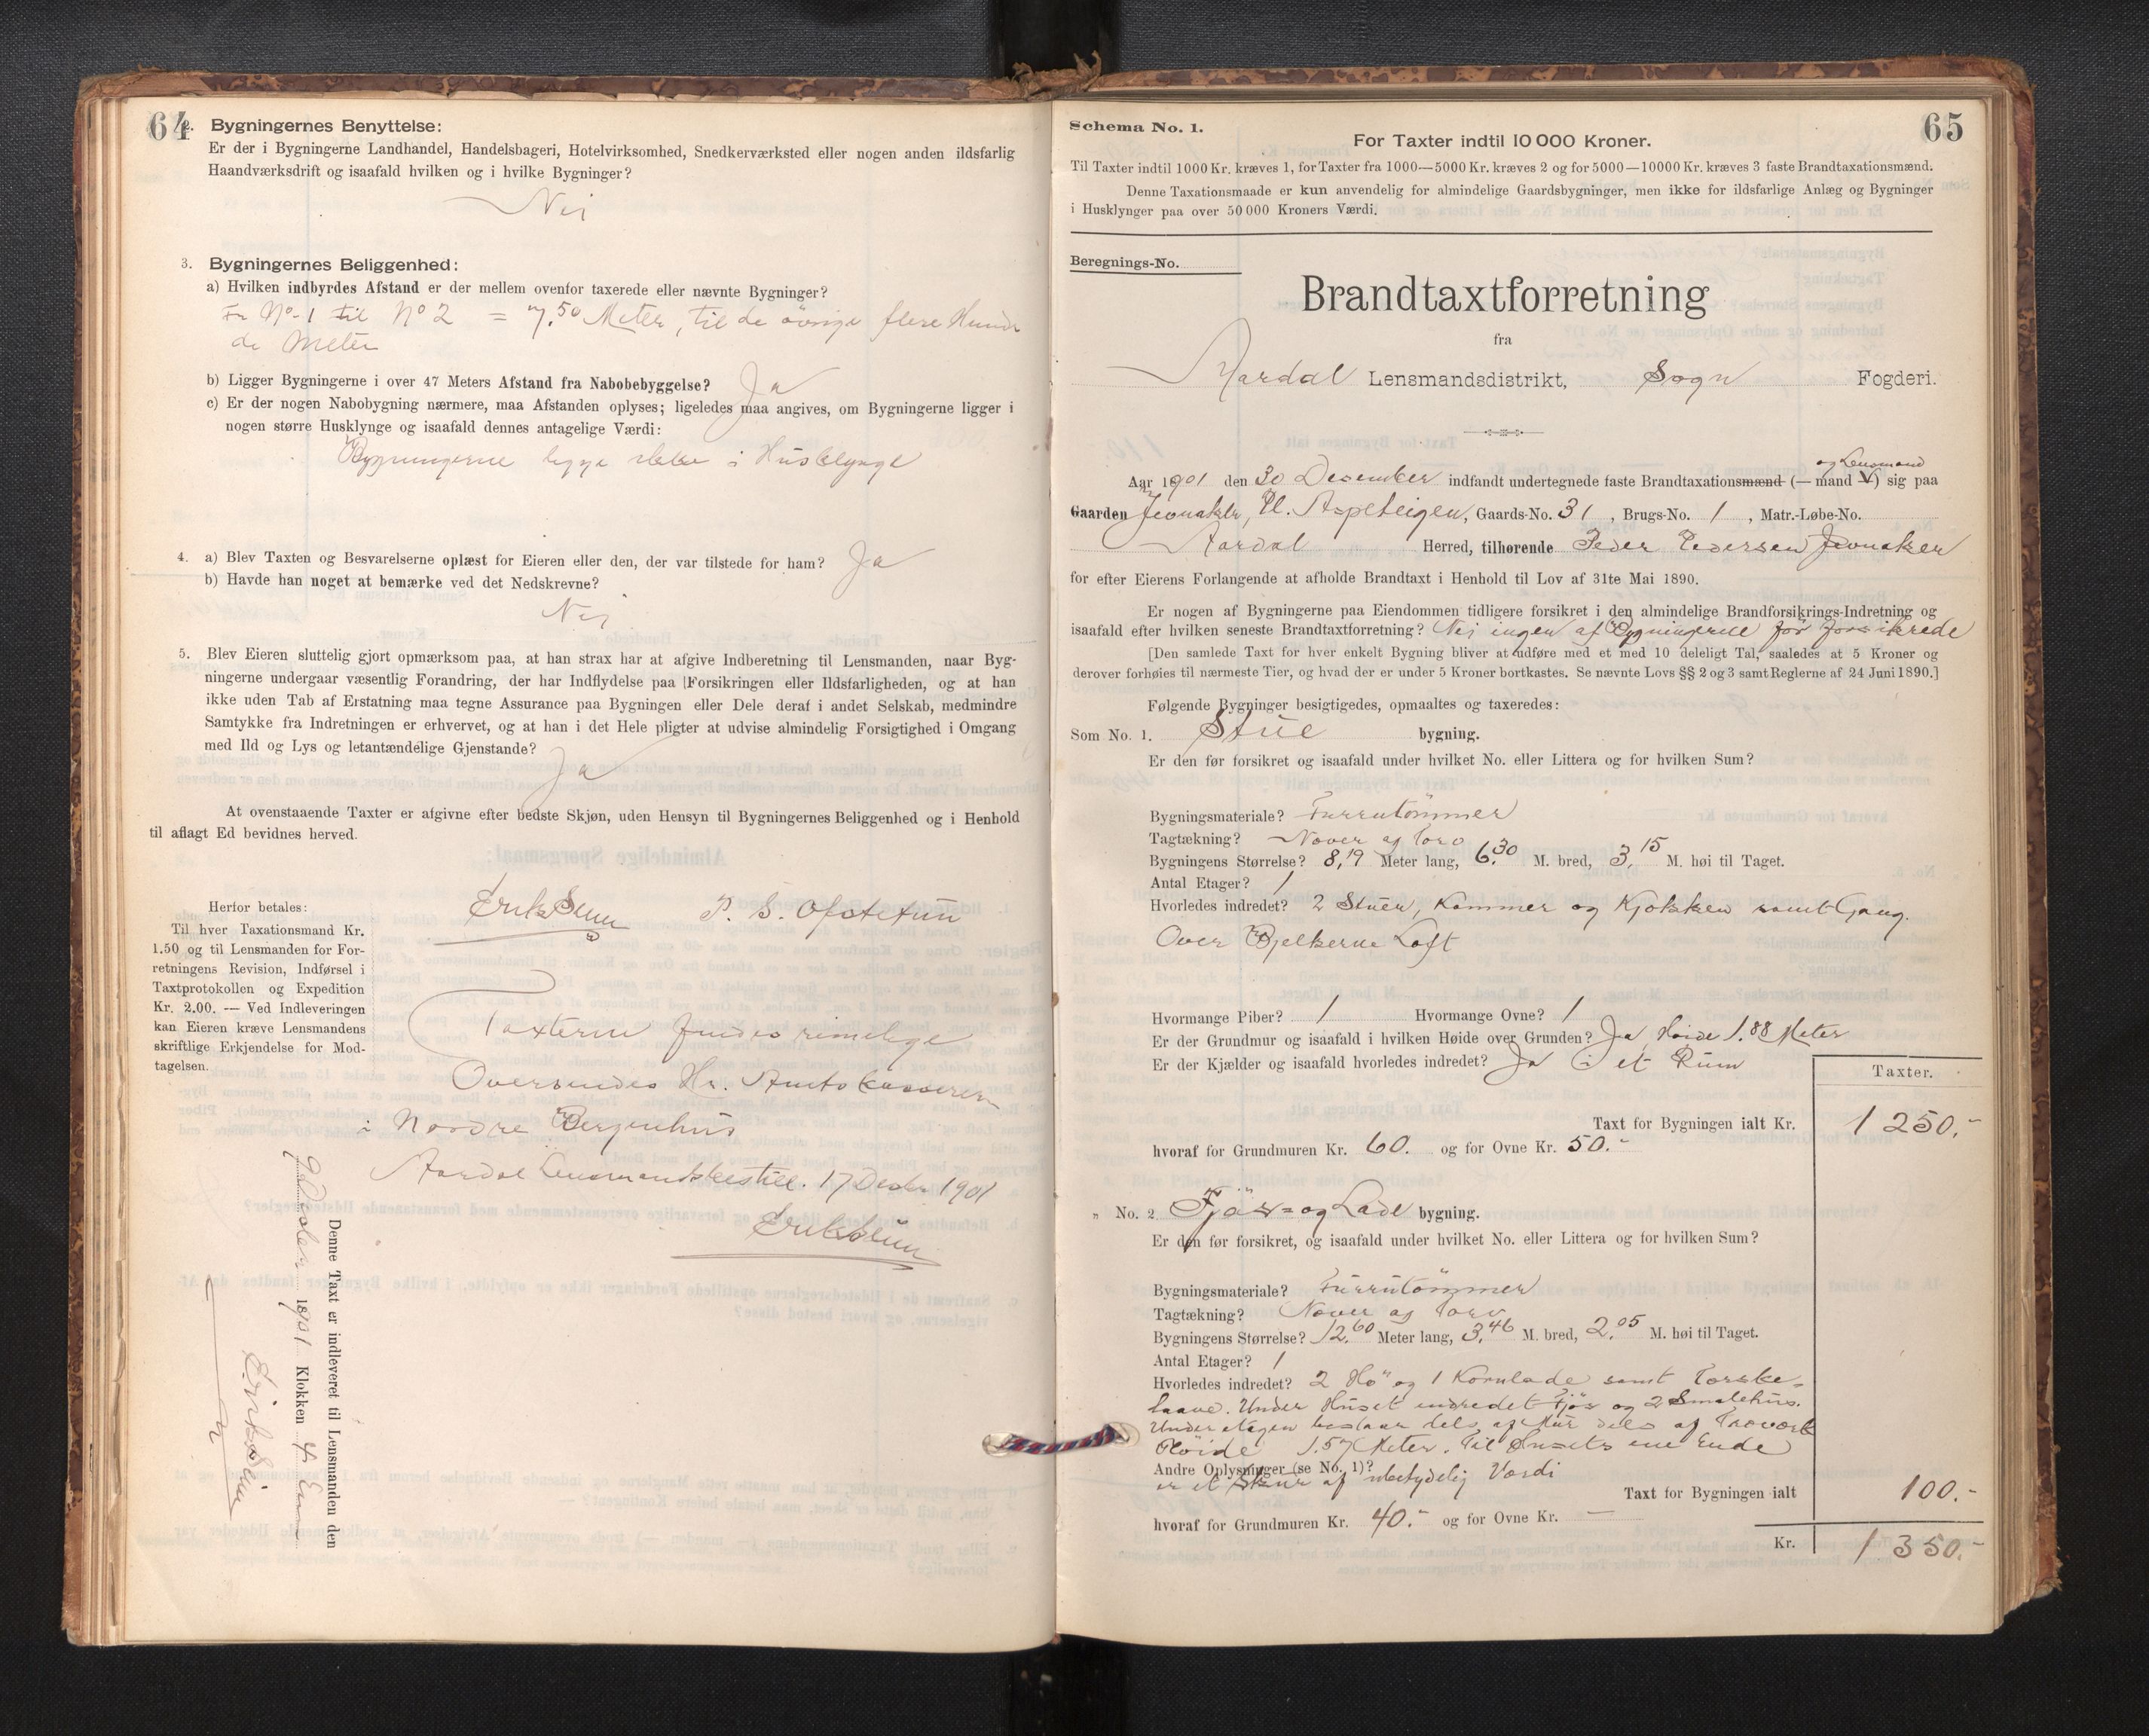 64
2. Bygningernes Benyttelse:
Er der i Bygningerne Landhandel, Handelsbageri, Hotelvirksomhed, Snedkerværksted eller nogen anden ildsfarlig
Haandværksdrift og isaafald hvilken og i hvilke Bygninger?
Nei
3. Bygningernes Beliggenhed:
a) Hvilken indbyrdes Afstand er der mellem ovenfor taxerede eller nævnte Bygninger?
Fr No 1 til No 2 = 7,50 Meter, til de øvrige flere Hundre
de Meter
b) Ligger Bygningerne i over 47 Meters Afstand fra Nabobebyggelse? Ja
c) Er der nogen Nabobygning nærmere, maa Afstanden oplyses; ligeledes maa angives, om Bygningerne ligger i
nogen større Husklynge og isaafald dennes antagelige Værdi:
Bygningerne ligge ikke i Husklynge
4. a) Blev Taxten og Besvarelserne oplæst for Eieren eller den, der var tilstede for ham? Ja
b) Havde han noget at bemærke ved det Nedskrevne?
Nei
5. Blev Eieren sluttelig gjort opmærksom paa, at han strax har at afgive Indberetning til Lensmanden, naar Byg-
ningerne undergaar væsentlig Forandring, der har Indflydelse paa Forsikringen eller Ildsfarligheden, og at han
ikke uden Tab af Erstatning maa tegne Assurance paa Bygningen eller Dele deraf i andet Selskab, medmindre
Samtykke fra Indretningen er erhvervet, og at han i det Hele pligter at udvise almindelig Forsigtighed i Omgang
med Ild og Lys og letantændelige Gjenstande?
Ja
At ovenstaaende Taxter er afgivne efter bedste Skjøn, uden Hensyn til Bygningernes Beliggenhed og i Henhold
til aflagt Ed bevidnes herved.
P. S. Ofstetun
Herfor betales:
Til hver Taxationsmand Kr.
1.50 og til Lensmanden for For-
retningens Revision, Indførsel i
Taxtprotokollen og Expedition
Kr. 2.00. — Ved Indleveringen
kan Eieren kræve Lensmandens
skriftlige Erkjendelse for Mod-
tagelsen.
Taxterne findes rimelige
Oversendes Hr. Amtskasseren
i Nordre Bergenhus
Aardal Lensmandsbestill. 17 Decbr 1901
Denne Taxt er indleveret til Lensmanden den
1901 Klokken 4 Em
65
Schema No. 1.
For Taxter indtil 10 000 Kroner.
Til Taxter indtil 1000 Kr. kræves 1, for Taxter fra 1000—5000 Kr. kræves 2 og for 5000—10000 Kr. kræves 3 faste Brandtaxationsmænd.
Denne Taxationsmaade er kun anvendelig for almindelige Gaardsbygninger, men ikke for ildsfarlige Anlæg og Bygninger
i Husklynger paa over 50 000 Kroners Værdi.
Beregnings-No.
Brandtaxtforretning
fra
Aardal Lensmandsdistrikt, Sogn Fogderi.
og Lensmand
Aar 1901 den 30 December indfandt undertegnede faste Brandtaxationsmænd (— mand V) sig paa
Gaarden Pl. Aspeteigen, Gaards-No. 31, Brugs-No. 1, Matr.-Løbe-No.
Aardal Herred, tilhørende Peder Pedersen
for efter Eierens Forlangende at afholde Brandtaxt i Henhold til Lov af 31te Mai 1890.
Er nogen af Bygningerne paa Eiendommen tidligere forsikret i den almindelige Brandforsikrings-Indretning og
isaafald efter hvilken seneste Brandtaxtforretning? Nei ingen af Bygningerne før forsikrede
[Den samlede Taxt for hver enkelt Bygning bliver at udføre med et med 10 deleligt Tal, saaledes at 5 Kroner og
derover forhøies til nærmeste Tier, og hvad der er under 5 Kroner bortkastes. Se nævnte Lovs §§ 2 og 3 samt Reglerne af 24 Juni 1890.]
Følgende Bygninger besigtigedes, opmaaltes og taxeredes:
Som No. 1. Stue bygning.
Er den før forsikret og isaafald under hvilket No. eller Littera og for hvilken Sum?
Bygningsmateriale? Furrutømmer
Tagtækning? Næver og Torv
Bygningens Størrelse? 8,19 Meter lang, 6,30 M. bred, 3,15 M. høi til Taget.
Antal Etager? 1
Hvorledes indredet? 2 Stuer, Kammer og Kjøkken samt Gang.
Over Bjelkerne Loft
Hvormange Piber? 1 Hvormange Ovne? 1
Er der Grundmur og isaafald i hvilken Høide over Grunden? Ja, Høide 1.88 Meter
Er der Kjælder og isaafald hvorledes indredet? Ja i et Rum
Taxter.
Taxt for Bygningen ialt Kr. 1 250.-
hvoraf for Grundmuren Kr. 60. og for Ovne Kr. 50.-
" No. 2 Fjøs- og Lade bygning.
Er den før forsikret, og isaafald under hvilket No. eller Littera og for hvilken Sum?
Bygningsmateriale? Furrutømmer
Tagtækning? Næver og Torv
Bygningens Størrelse? 12,60 Meter lang, 3,46 M. bred, 2,05 M. høi til Taget.
Antal Etager? 1
Hvorledes indredet? 2 Hø- og 1 Kornlade samt Torske-
laave. Under Huset indredet Fjøs og 2 Smalehus.
Underetagen bestaar dels af Mur dels af Træværk
Høide 1.57 Meter. Til Husets ene Ende
Andre Oplysninger (se No. 1)?
er et Skur af ubetydelig Værdi
Taxt for Bygningen ialt 100.-
hvoraf for Grundmuren Kr. 40.- og for Ovne Kr. —
Kr. 1 350.-